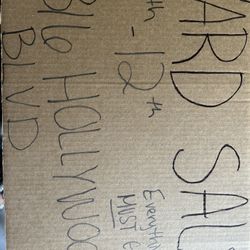 ARD SAL
th - 12th
Everythin
MUST G
816 HOLLYWOO
BLVD